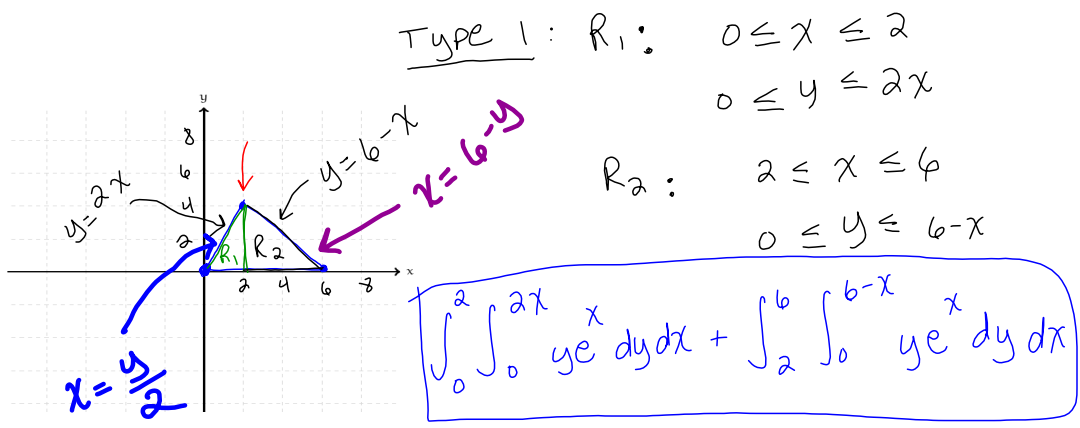 Type 1: R₁: 0 ≤ x ≤ 2
0 ≤ y ≤ 2x
R₂: 2 ≤ x ≤ 6
0 ≤ y ≤ 6-x
y
8
6
4
2
x
2 4 6 8
y=2x
y=6-x
x=6-y
R₁ R₂
x=y/2
∫₀² ∫₀²ˣ yeˣ dy dx + ∫₂⁶ ∫₀⁶⁻ˣ yeˣ dy dx